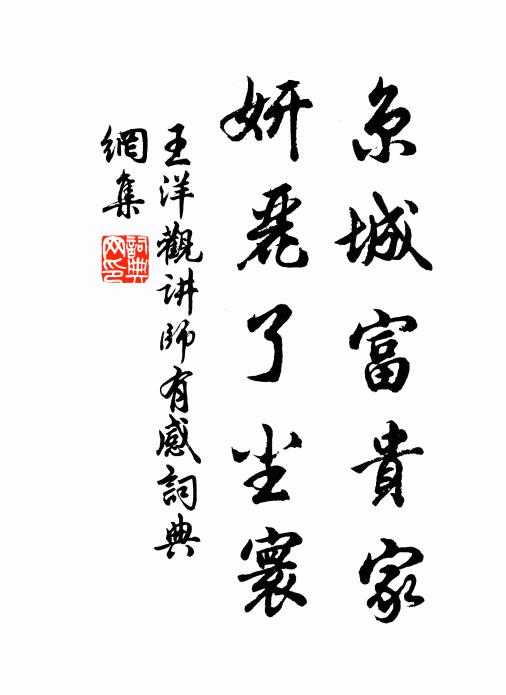 京城富貴家
妍麗了尘寰
王洋觀讲師有感詞典
網集
詞典
网印